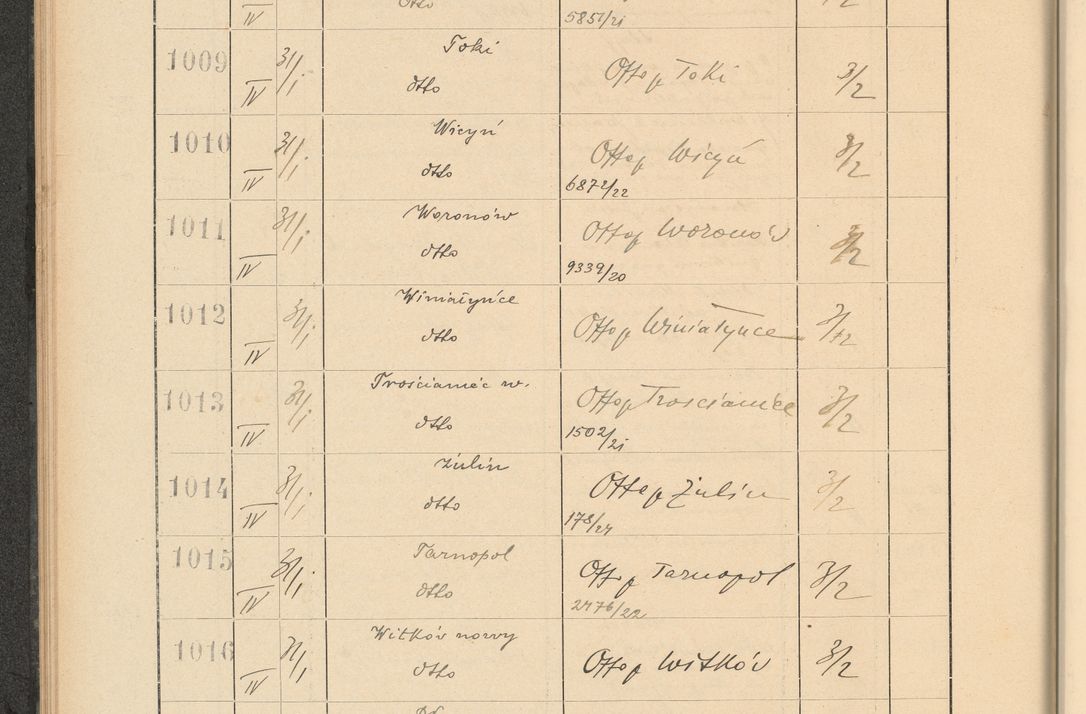 IV dtto 5851/21
1009 31/1 Toki Otto p Toki 3/2
IV dtto
1010 31/1 Wicyń Otto p Wicyń 3/2
IV dtto 6872/22
1011 31/1 Woronów Otto p Woronów 3/2
IV dtto 9339/20
1012 31/1 Winiatyńce Otto p Winiatynce 3/2
IV dtto
1013 31/1 Trościaniec w. Otto p Trościaniec 3/2
IV dtto 1502/21
1014 31/1 Żulin Otto p Żulin 3/2
IV dtto 178/24
1015 31/1 Tarnopol Otto p Tarnopol 3/2
IV dtto 2476/22
1016 31/1 Witków nowy Otto p Witków 3/2
IV dtto